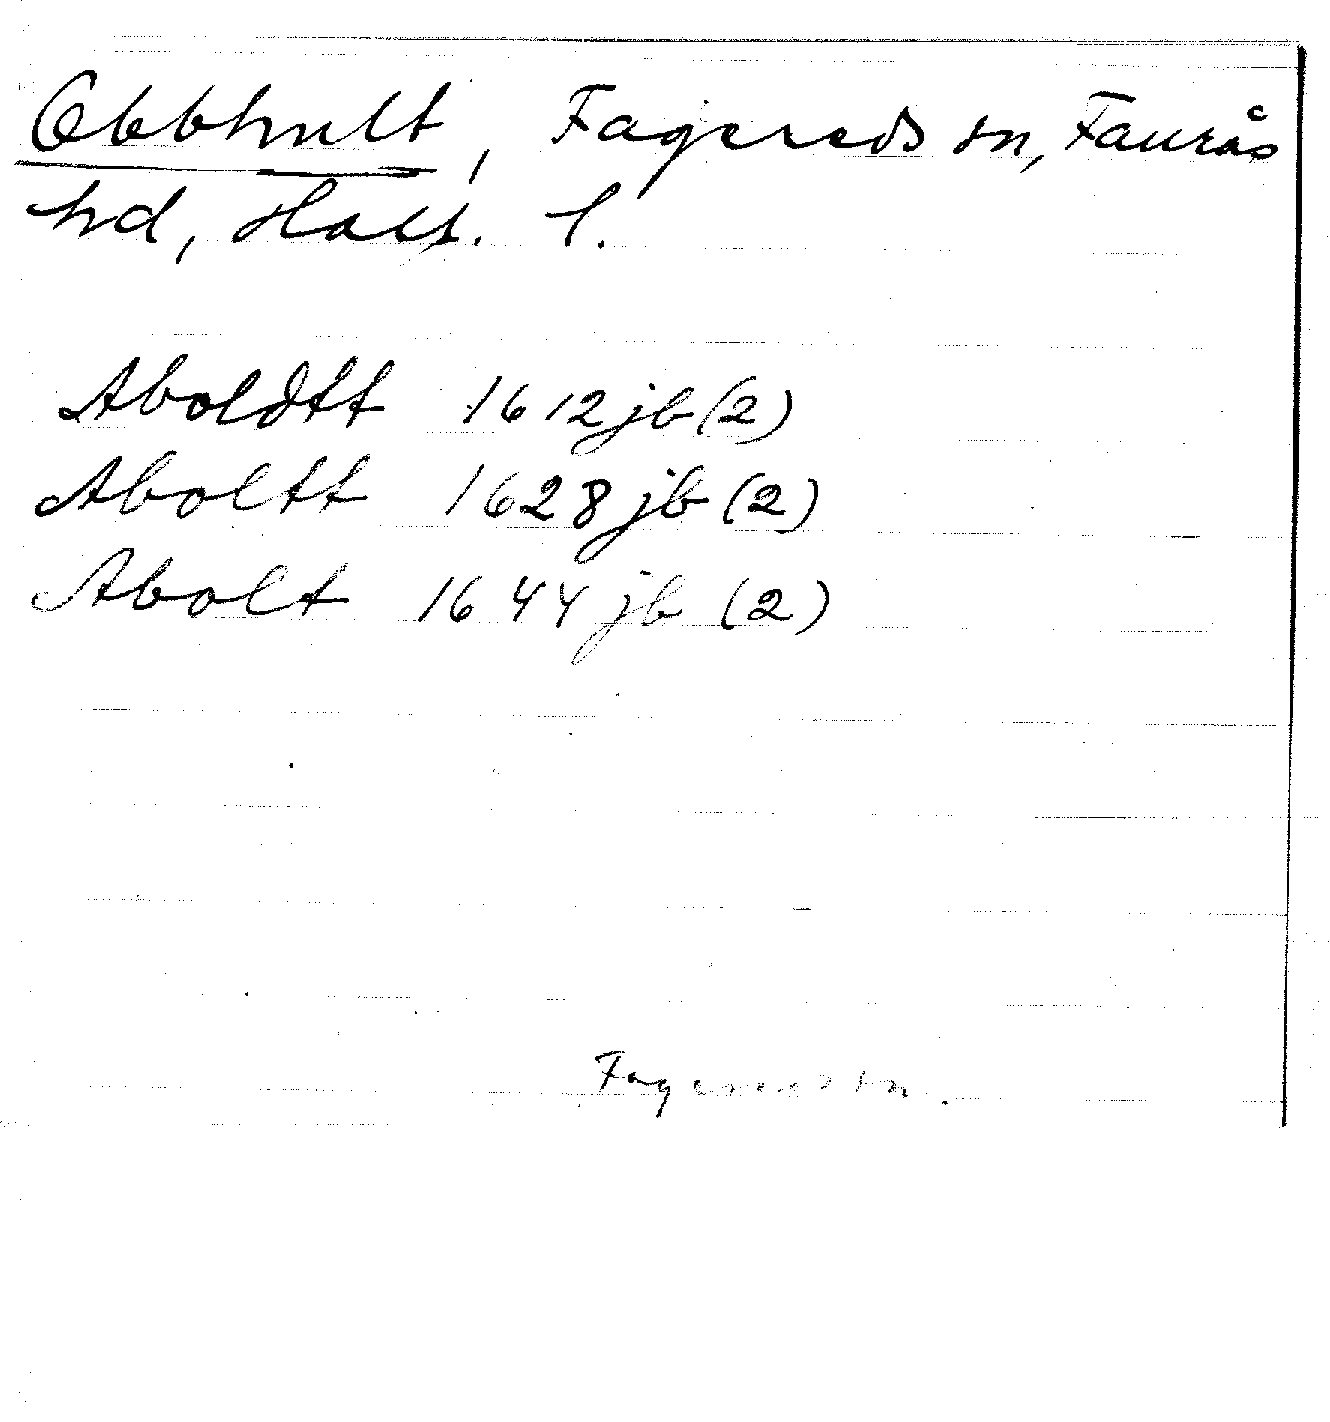 Obbhult, Fagereds sn, Faurås
hd, Hall. l.
Aboldtt 1612 jb (2)
Aboltt 1628 jb (2)
Abolt 1644 jb (2)
Fagereds sn.